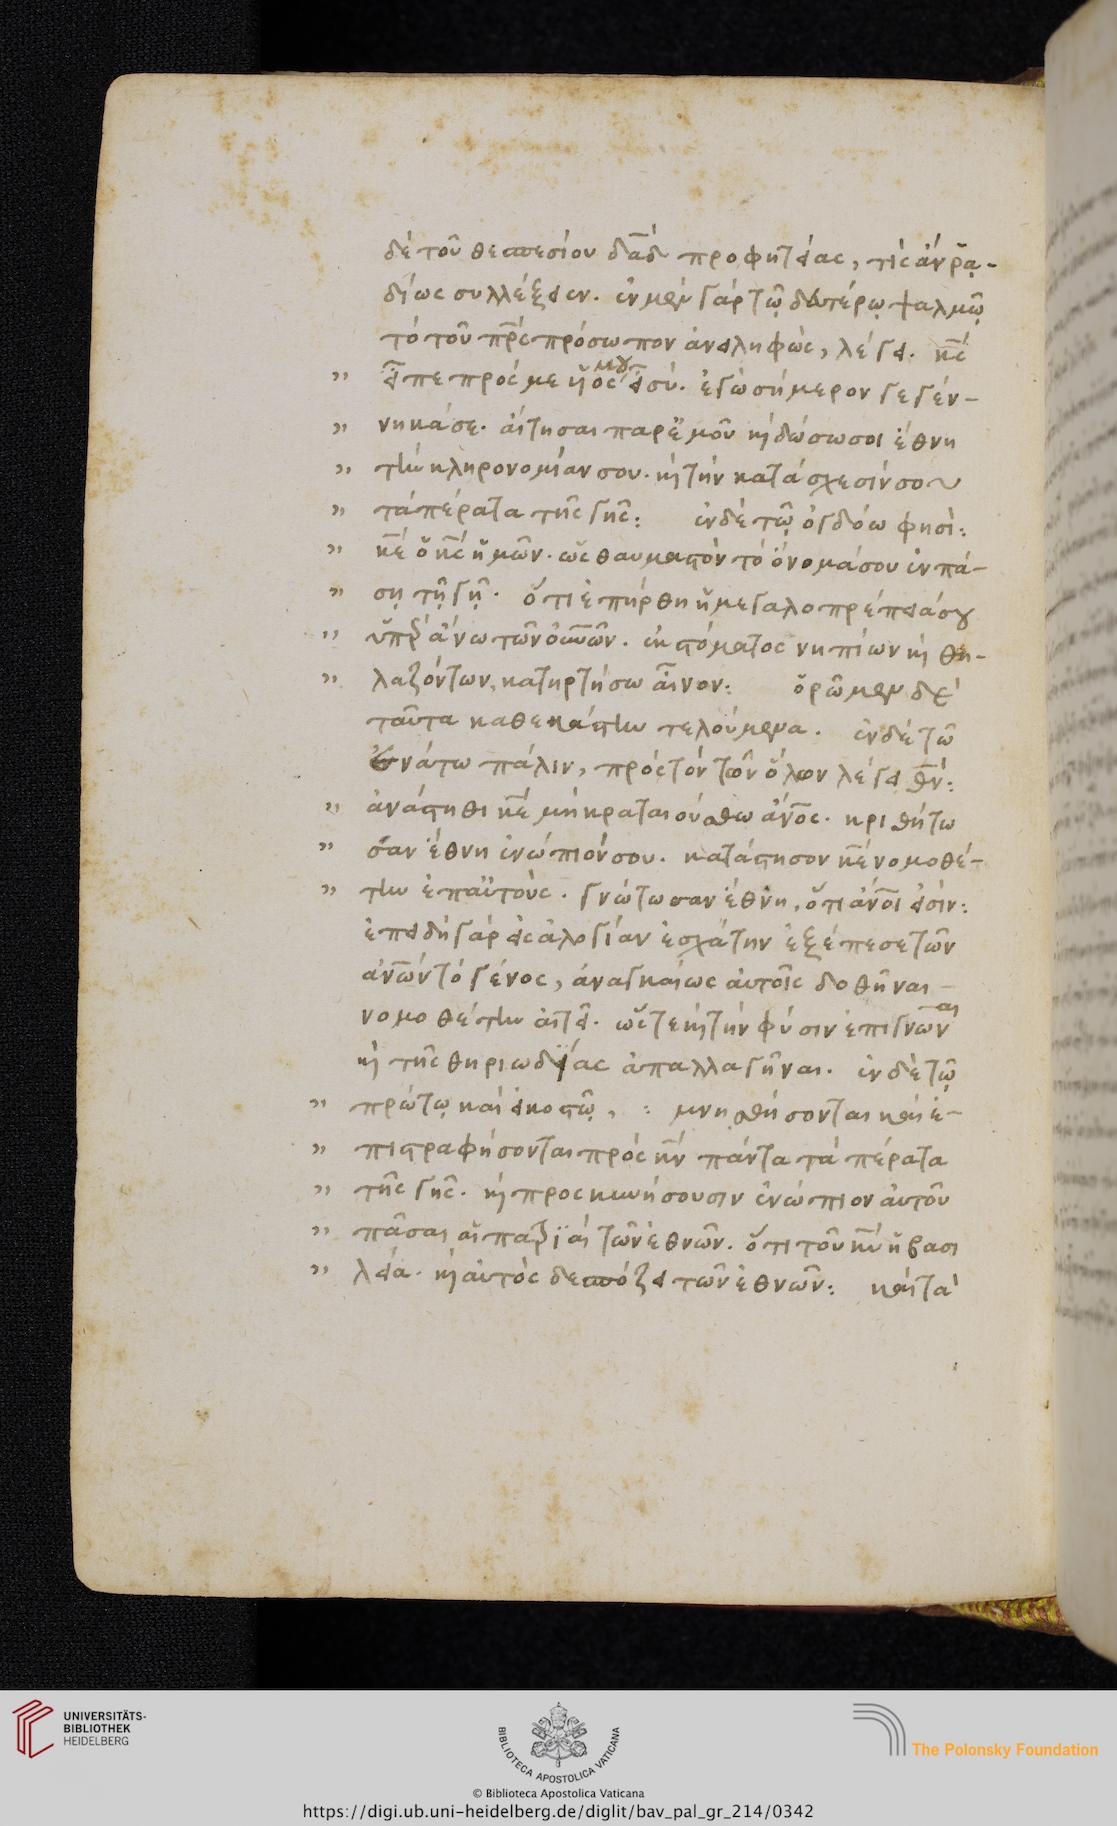 δὲ τοῦ θεσπεσίου δα̅δ προφητείας, τίς ἂν ῥᾳ-
δίως συλλέξειεν. ἐν μὲν γὰρ τῷ δευτέρῳ ψαλμῷ
τὸ τοῦ πρ̅ς πρόσωπον ἀνειληφὼς, λέγει. κ̅ς
" εἶπε πρός με υἱός μου εἶ σύ. ἐγὼ σήμερον γεγέν-
" νηκά σε. αἴτησαι παρ ἐμοῦ κὶ δώσω σοι ἔθνη
" τὴν κληρονομίαν σου. κὶ τὴν κατάσχεσίν σου
" τὰ πέρατα τῆς γῆς: ἐν δὲ τῷ ὀγδόω φησὶ:
" κ̅ε ὁ κ̅ς ἡμῶν. ὡς θαυμαστὸν τὸ ὄνομά σου ἐν πά-
" σῃ τῇ γῇ. ὅτι ἐπήρθη ἡ μεγαλοπρέπειά σου
" ὑπεράνω τῶν οὐν̅ῶν. ἐκ στόματος νηπίων κὶ θη-
" λαζόντων, κατηρτήσω αἶνον: ὁρῶμεν δὲ
ταῦτα καθεκάστην τελούμενα. ἐν δὲ τῶ
ἐνάτω πάλιν, πρὸς τὸν τῶν ὅλων λέγει θ̅ν:
" ἀνάστηθι κ̅ε μὴ κραταιούσθω ἄν̅ος. κριθήτω
" σαν ἔθνη ἐνώπιόν σου. κατάστησον κ̅ε νομοθέ-
" την ἐπ αὐτοὺς. γνώτωσαν ἔθνη, ὅτι ἄν̅οί εἰσιν:
ἐπειδὴ γὰρ εἰς ἀλογίαν ἐσχάτην ἐξέπεσε τῶν
ἀν̅ων τὸ γένος, ἀναγκαίως αὐτοῖς δοθῆναι
νομοθέτην αἰτεῖ. ὥστε κὶ τὴν φύσιν ἐπιγνῶναι
κὶ τῆς θηριωδίας ἀπαλλαγῆναι. ἐν δὲ τῷ
" πρώτῳ καὶ εἰκοστῷ, : μνησθήσονται καὶ ἐ-
" πιστραφήσονται πρὸς κ̅ν πάντα τὰ πέρατα
" τῆς γῆς. κὶ προσκυνήσουσιν ἐνώπιον αὐτοῦ
" πᾶσαι αἱ πατριαὶ τῶν ἐθνῶν. ὅτι τοῦ κ̅υ ἡ βασι
" λεία. κὶ αὐτὸς δεσπόζει τῶν ἐθνῶν: καὶ τὰ
UNIVERSITÄTS-
BIBLIOTHEK
HEIDELBERG
BIBLIOTECA APOSTOLICA VATICANA
The Polonsky Foundation
© Biblioteca Apostolica Vaticana
https://digi.ub.uni-heidelberg.de/diglit/bav_pal_gr_214/0342